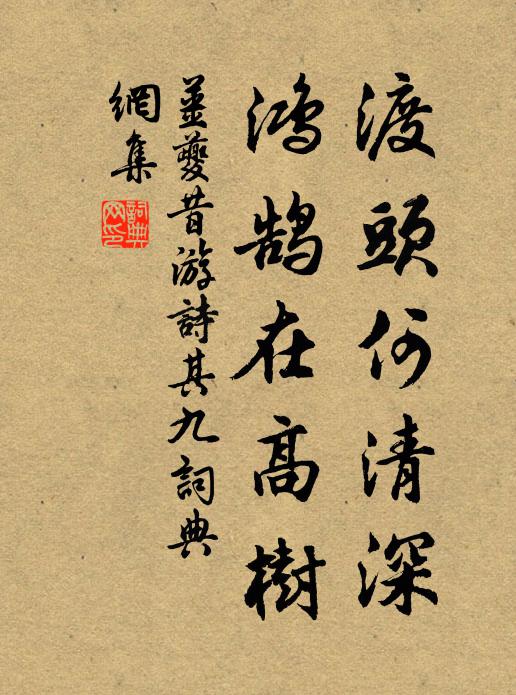 渡頭何清深
鴻鹄在高樹
姜夔昔游詩其九詞典
網集
詞典網印